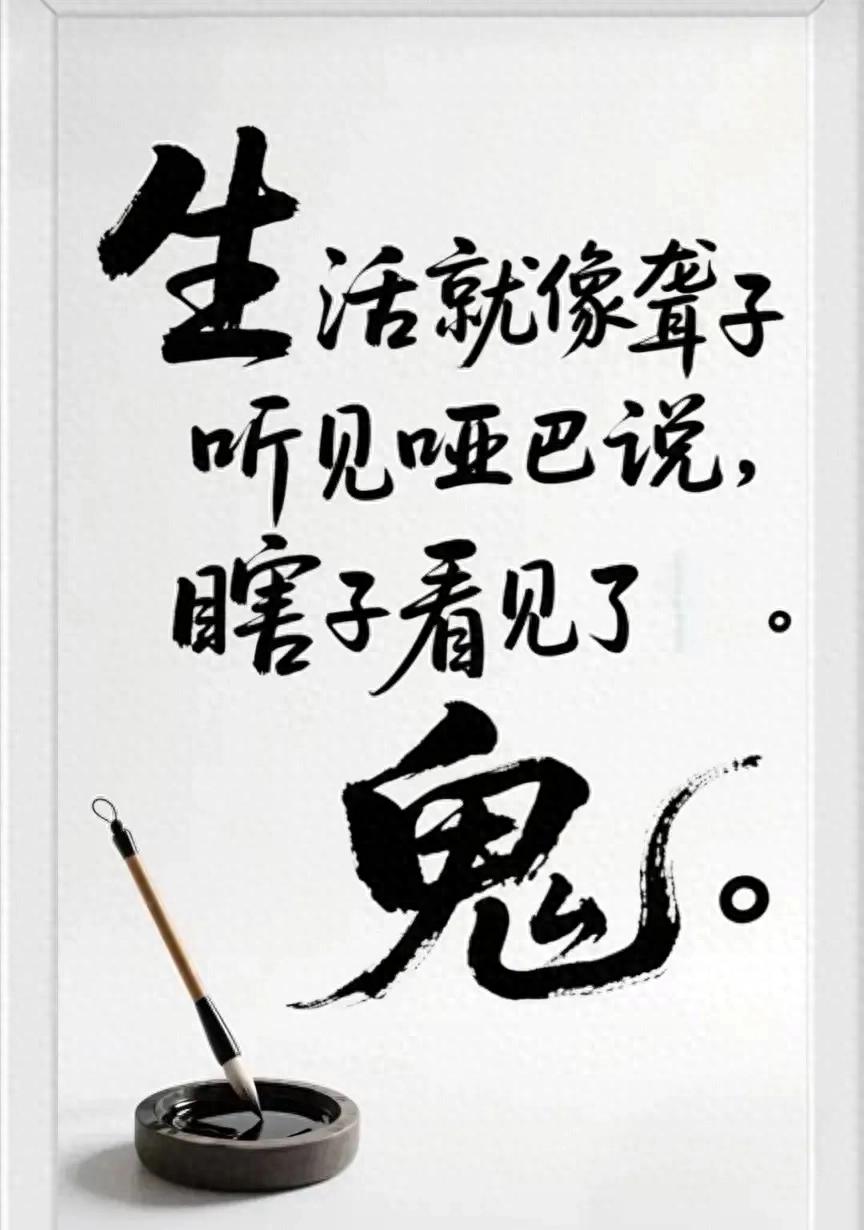 生活就像聋子
听见哑巴说，
瞎子看见了 。
鬼。